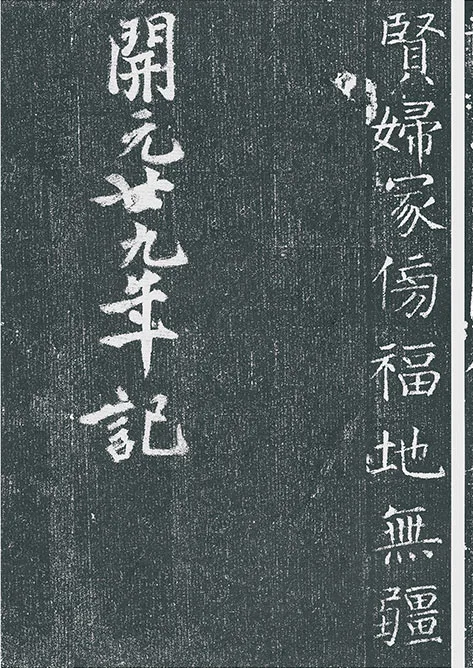 賢婦家傍福地無疆
開元廿九年記